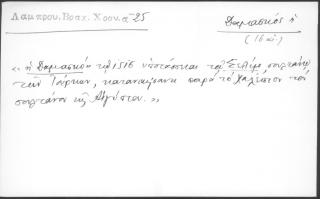 Λαμπρου, Βραχ. Χρον. α-25
Δαμασκός ἡ
(16 αἰ.)
«ἡ Δαμασκὸς τῷ 1516 ὑποτάσσεται τῷ Σελὴμ σουλτάνῳ
τῶν Τούρκων, παρὰ τὸ Χαλέπιον τοῦ
σουλτάνου τῆς Αἰγύπτου.»